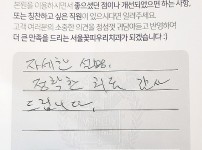 본원을 이용하시면서 좋으셨던 점이나 개선되었으면 하는 사항,
또는 칭찬하고 싶은 직원이 있으시다면 알려주세요.
고객 여러분의 소중한 의견을 정성껏 귀담아듣고 반영하여
더 큰 만족을 드리는 서울꽃피우리치과가 되겠습니다 :)
자세한 설명,
정확한 치료 감사
드립니다.